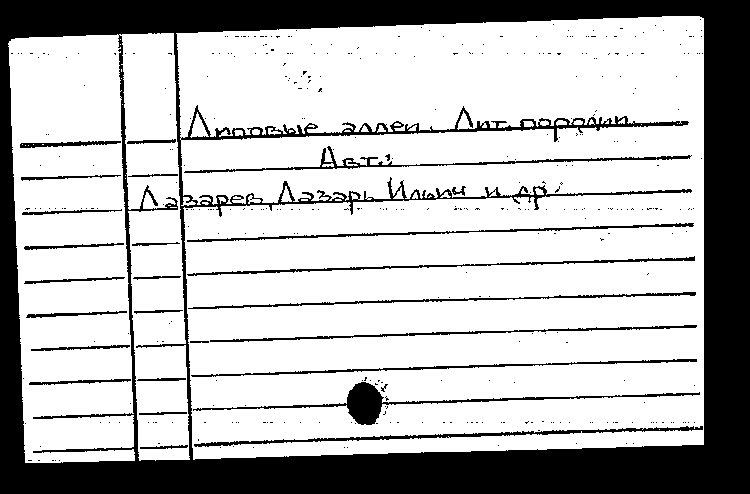 Липовые аллеи. Лит. пародии.
Авт.:
Лазарев, Лазарь Ильич и др.